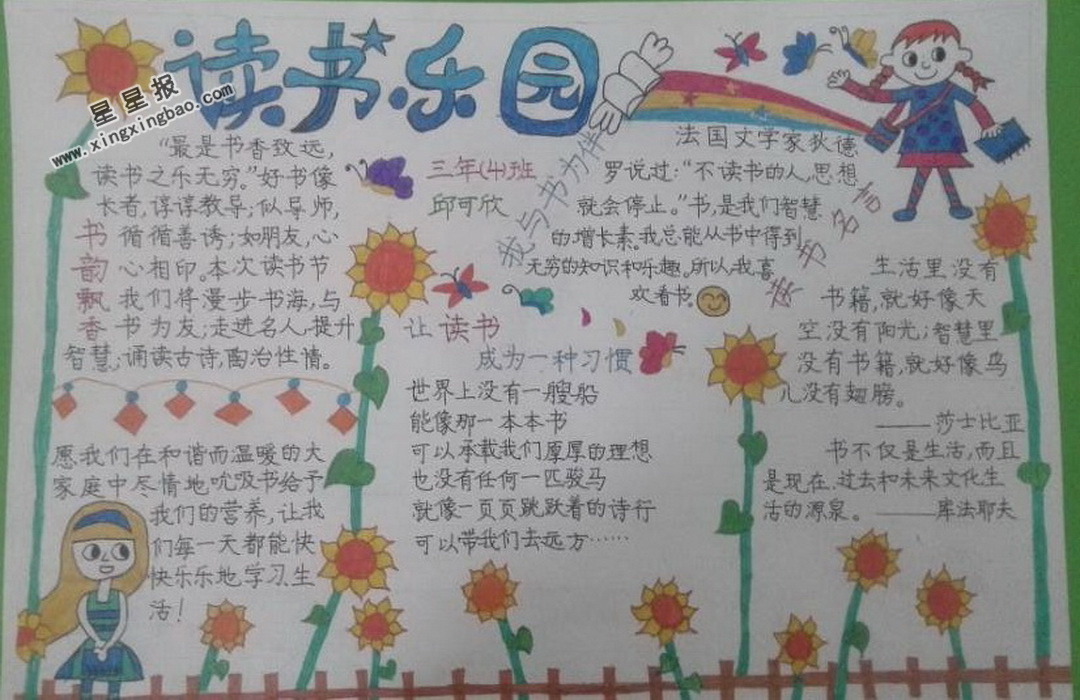 读书乐园
星星报
www.xingxingbao.com
“最是书香致远,
读书之乐无穷。”好书像
长者,谆谆教导;似导师,
循循善诱;如朋友,心
心相印。本次读书节
我们将漫步书海,与
书为友;走进名人,提升
智慧;诵读古诗,陶冶性情。
书韵飘香
愿我们在和谐而温暖的大
家庭中尽情地吮吸书给予
我们的营养,让我
们每一天都能快
快乐乐地学习,生
活!
三年(4)班
邱可欣
我与书为伴
法国文学家狄德
罗说过:“不读书的人,思想
就会停止。”书,是我们智慧
的增长素。我总能从书中得到
无穷的知识和乐趣。所以,我喜
欢看书。
让读书
成为一种习惯
世界上没有一艘船
能像那一本本书
可以承载我们厚厚的理想
也没有任何一匹骏马
就像一页页跳跃着的诗行
可以带我们去远方……
读书名言
生活里没有
书籍,就好像天
空没有阳光;智慧里
没有书籍,就好像鸟
儿没有翅膀。
——莎士比亚
书不仅是生活,而且
是现在、过去和未来文化生
活的源泉。——库法耶夫